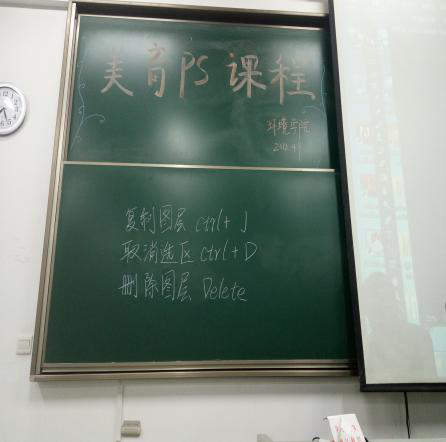 美育PS课程
环境学院
复制图层 ctrl+J
取消选区 ctrl+D
删除图层 Delete